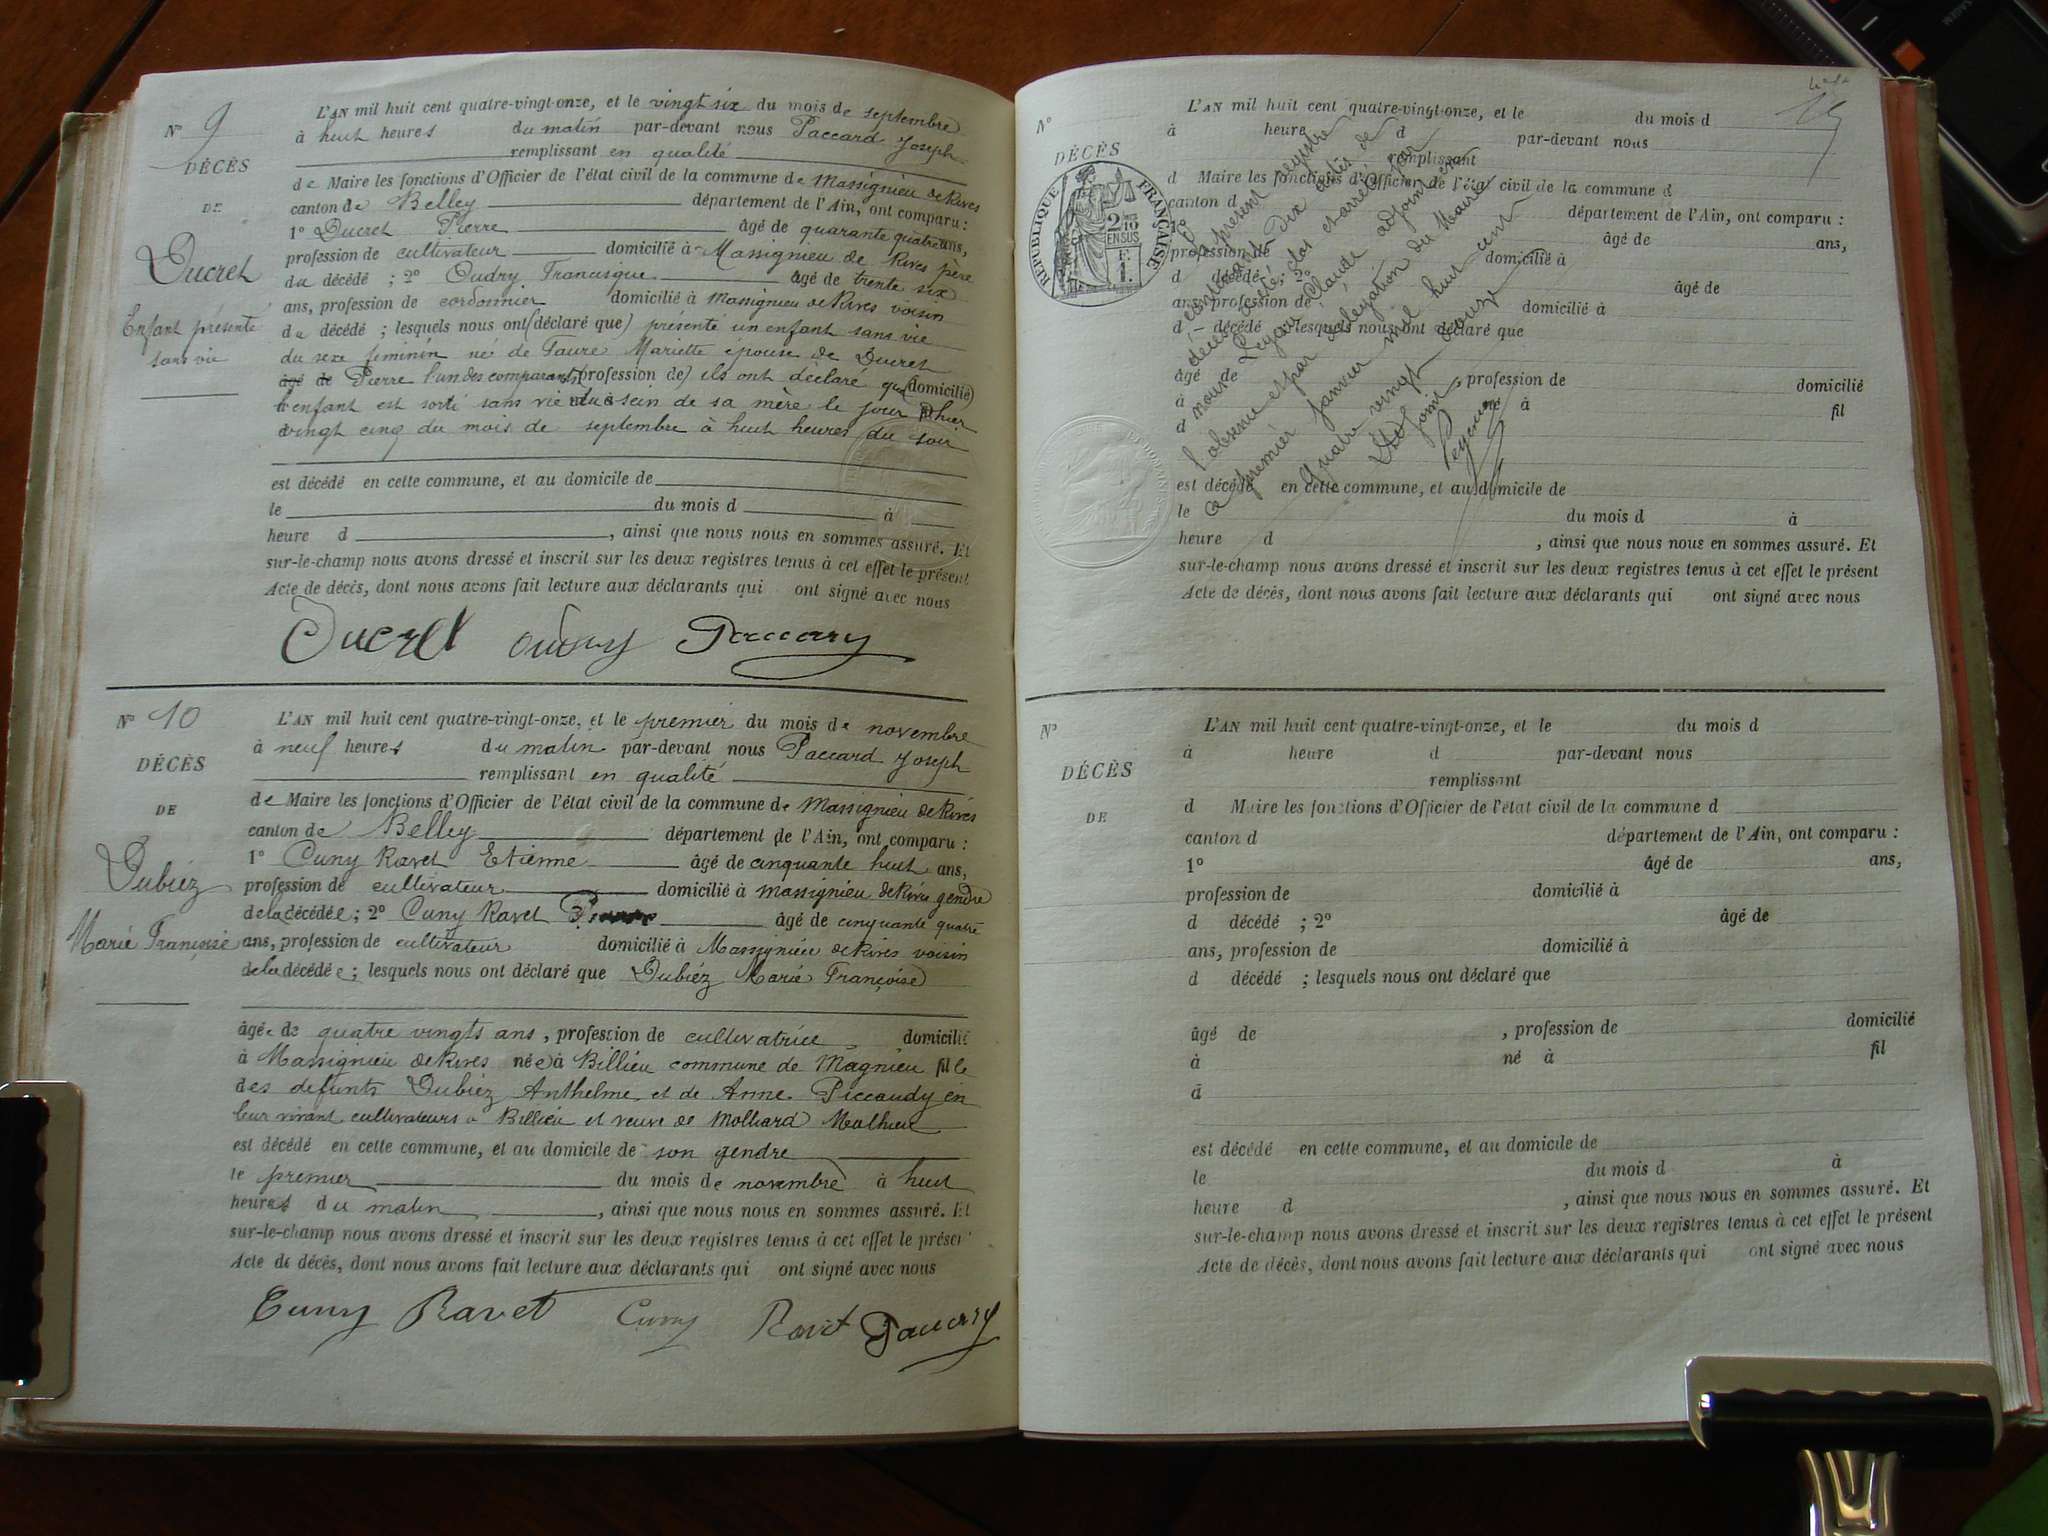 N° 9
DÉCÈS
DE
Ducret
Enfant présenté
sans vie
L'AN mil huit cent quatre-vingt-onze, et le vingt six du mois de septembre
à huit heures du matin par-devant nous Paccard Joseph
remplissant en qualité
de Maire les fonctions d'Officier de l'état civil de la commune de Massignieu de Rives
canton de Belley département de l'Ain, ont comparu :
1° Ducret Pierre âgé de quarante quatre ans,
profession de cultivateur domicilié à Massignieu de Rives père
du décédé ; 2° Oudry Francisque âgé de trente six
ans, profession de cordonnier domicilié à Massignieu de Rives voisin
du décédé ; lesquels nous ont (déclaré que) présenté un enfant sans vie
du sexe féminin né de Faure Mariette épouse de Ducret
âgé de Pierre l'un des comparants, (profession de) ils ont déclaré que (domicilié)
l'enfant est sorti sans vie du sein de sa mère le jour d'hier
vingt cinq du mois de septembre à huit heures du soir
est décédé en cette commune, et au domicile de
le du mois d à
heure d , ainsi que nous nous en sommes assuré. Et
sur-le-champ nous avons dressé et inscrit sur les deux registres tenus à cet effet le présent
Acte de décès, dont nous avons fait lecture aux déclarants qui ont signé avec nous
Ducret Oudry Paccard
N° 10
DÉCÈS
DE
Dubiez
Marie Françoise
L'AN mil huit cent quatre-vingt-onze, et le premier du mois de novembre
à neuf heures du matin par-devant nous Paccard Joseph
remplissant en qualité
de Maire les fonctions d'Officier de l'état civil de la commune de Massignieu de Rives
canton de Belley département de l'Ain, ont comparu :
1° Cuny Ravet Etienne âgé de cinquante huit ans,
profession de cultivateur domicilié à Massignieu de Rives gendre
de la décédée ; 2° Cuny Ravet âgé de cinquante quatre
ans, profession de cultivateur domicilié à Massignieu de Rives voisin
de la décédée ; lesquels nous ont déclaré que Dubiez Marie Françoise
âgée de quatre vingts ans, profession de cultivatrice domicilié
à Massignieu de Rives née à Billieu commune de Magnieu fille
des défunts Dubiez Anthelme et de Anne Piccaudy en
leur vivant cultivateurs à Billieu et veuve de Molliard Mathieu
est décédé en cette commune, et au domicile de son gendre
le premier du mois de novembre à huit
heures du matin , ainsi que nous nous en sommes assuré. Et
sur-le-champ nous avons dressé et inscrit sur les deux registres tenus à cet effet le présent
Acte de décès, dont nous avons fait lecture aux déclarants qui ont signé avec nous
Cuny Ravet Cuny Ravet Paccard
15
N°
DÉCÈS
RÉPUBLIQUE FRANÇAISE
2/10 EN SUS
1 F.
L'AN mil huit cent quatre-vingt-onze, et le du mois d
à heure d par-devant nous
remplissant
d Maire les fonctions d'Officier de l'état civil de la commune d
canton d département de l'Ain, ont comparu :
1° âgé de ans,
profession de domicilié à
d décédé ; 2° âgé de
ans, profession de domicilié à
d décédé ; lesquels nous ont déclaré que
âgé de , profession de domicilié
à né à fil
d
est décédé en cette commune, et au domicile de
le du mois d à
heure d , ainsi que nous nous en sommes assuré. Et
sur-le-champ nous avons dressé et inscrit sur les deux registres tenus à cet effet le présent
Acte de décès, dont nous avons fait lecture aux déclarants qui ont signé avec nous
Le présent registre
contenant dix actes de
décès a été clos et arrêté par
nous Claude adjoint en
l'absence et par délégation du Maire
ce premier janvier mil huit cent
quatre vingt douze
L'adjoint
N°
DÉCÈS
DE
L'AN mil huit cent quatre-vingt-onze, et le du mois d
à heure d par-devant nous
remplissant
d Maire les fonctions d'Officier de l'état civil de la commune d
canton d département de l'Ain, ont comparu :
1° âgé de ans,
profession de domicilié à
d décédé ; 2° âgé de
ans, profession de domicilié à
d décédé ; lesquels nous ont déclaré que
âgé de , profession de domicilié
à né à fil
d
est décédé en cette commune, et au domicile de
le du mois d à
heure d , ainsi que nous nous en sommes assuré. Et
sur-le-champ nous avons dressé et inscrit sur les deux registres tenus à cet effet le présent
Acte de décès, dont nous avons fait lecture aux déclarants qui ont signé avec nous